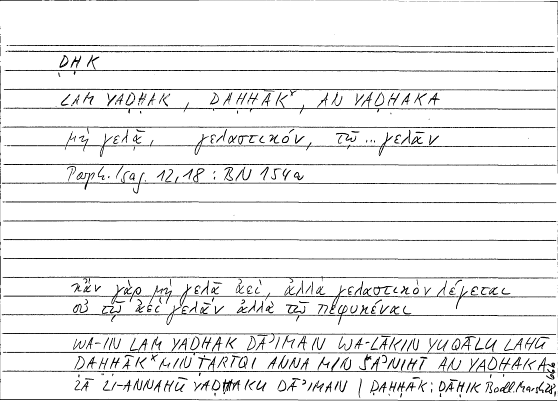 ḌḤK
LAM YAḌḤAK , ḌAḤḤĀKˣ , AN YAḌḤAKA
μὴ γελᾷ, γελαστικόν, τῷ ... γελᾶν
Porph. Isag. 12,18 : BN 154a
κἂν γὰρ μὴ γελᾷ ἀεί, ἀλλὰ γελαστικὸν λέγεται
οὐ τῷ ἀεὶ γελᾶν ἀλλὰ τῷ πεφυκέναι
WA-IN LAM YAḌḤAK DĀʾIMAN WA-LĀKIN YUQĀLU LAHŪ
ḌAḤḤĀKˣ MIN ṬARĪQI ANNA MIN ŠAʾNIHĪ AN YAḌḤAKA
LĀ LI-ANNAHŪ YAḌḤAKU DĀʾIMAN | ḌAḤḤĀK : ḌĀḤIK Bodl. Marsh 28,